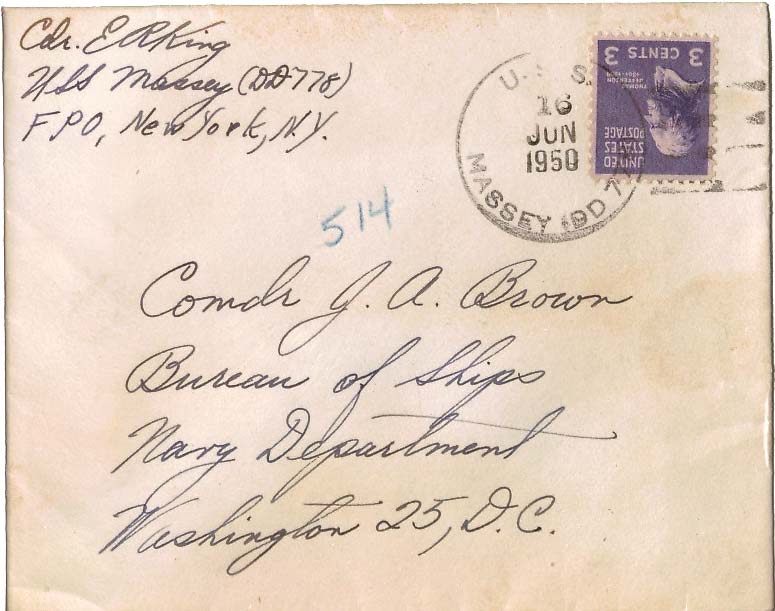 Cdr. E R King
USS Massey (DD-778)
FPO, New York, N.Y.
U. S. S.
16
JUN
1950
MASSEY (DD 77
3 CENTS 3
THOMAS
JEFFERSON
UNITED
STATES
POSTAGE
514
Comdr J. A. Brown
Bureau of Ships
Navy Department
Washington 25, D.C.